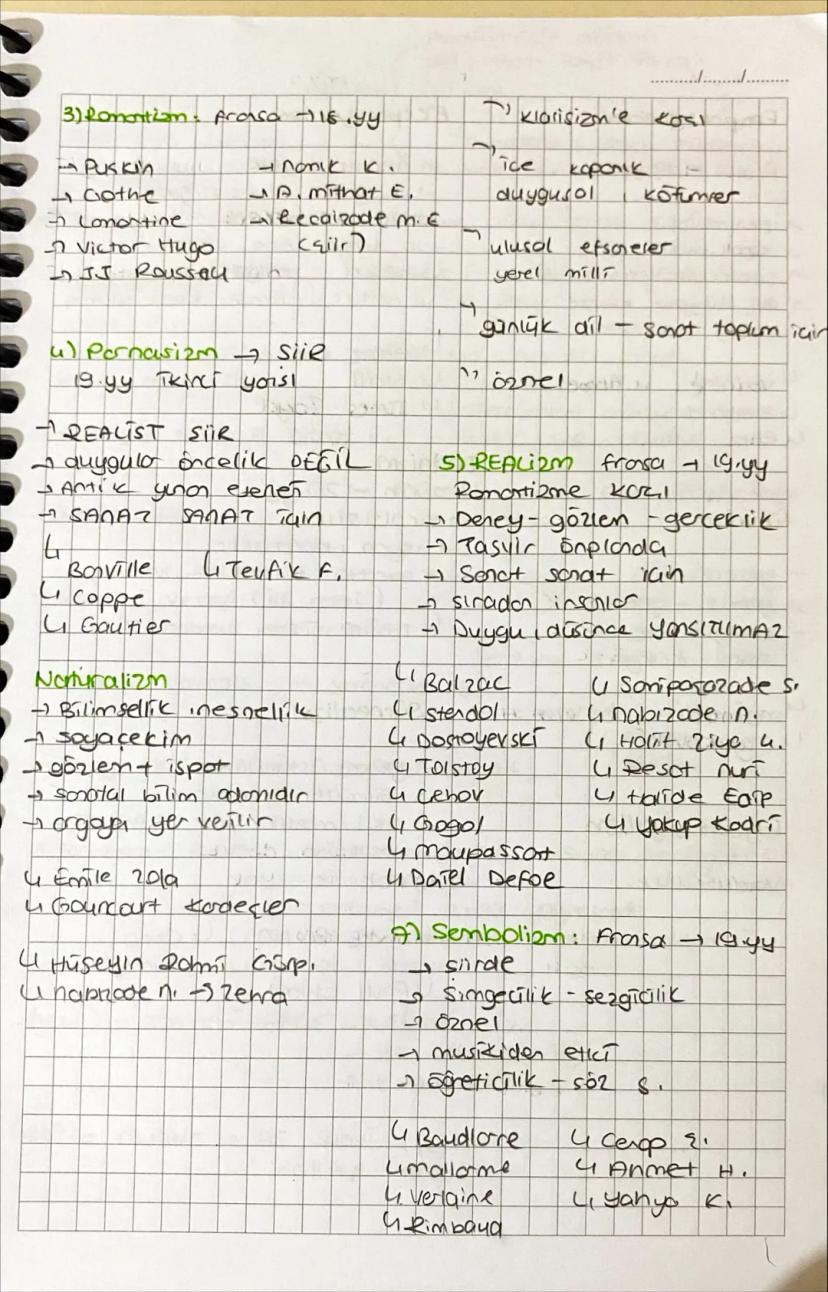 ....../....../......
3) Romantizm: Fransa → 18.yy
→ Puskin → Namık K.
→ Göthe → A. mithat E.
→ Lamartine → Recaizade m. E
→ Victor Hugo (şiir)
→ JJ Rousseau
→ Klasisizm'e karşı
→ içe kapanık
duygusal, kötümser
→ ulusal efsaneler
yerel milli
→ günlük dil – sanat toplum için
→ öznel
4) Parnasizm → şiir
19.yy ikinci yarısı
→ REALİST şiir
→ duygular öncelik DEĞİL
→ Antik yunan
→ SANAT SANAT için
↳ Banville ↳ Tevfik F.
↳ Coppe
↳ Gautier
5) REALizm fransa → 19.yy
Romantizme karşı
→ Deney - gözlem - gerceklik
→ Tasvir önplanda
→ Sanat sanat icin
→ sıradan insanlar
→ Duygu, düşünce YANSITILMAZ
↳ Balzac ↳ Samipaşazade S.
↳ stendal ↳ nabizade n.
↳ Dostoyevski ↳ Halit Ziya U.
↳ Tolstoy ↳ Resat nuri
↳ Cehov ↳ Halide Edip
↳ Gogol ↳ Yakup Kadri
↳ maupassant
↳ Daiel Defoe
Naturalizm
→ Bilimsellik, nesnellik
→ soyaçekim
→ gözlem + ispat
→ sanatçı bilim adamıdır
→ argoya yer verilir
↳ Emile zola
↳ Gouncourt kardeşler
↳ Hüseyin Rahmi Gürp.
↳ nabizade n. → Zehra
A) Sembolizm: Fransa → 19.yy
→ şiirde
→ simgecilik - sezgicilik
→ öznel
→ musikiden etki
→ öğreticilik – söz s.
↳ Baudlarre ↳ Cenap Ş.
↳ mallarme ↳ Ahmet H.
↳ verlaine ↳ Yahya K.
↳ Rimbaud